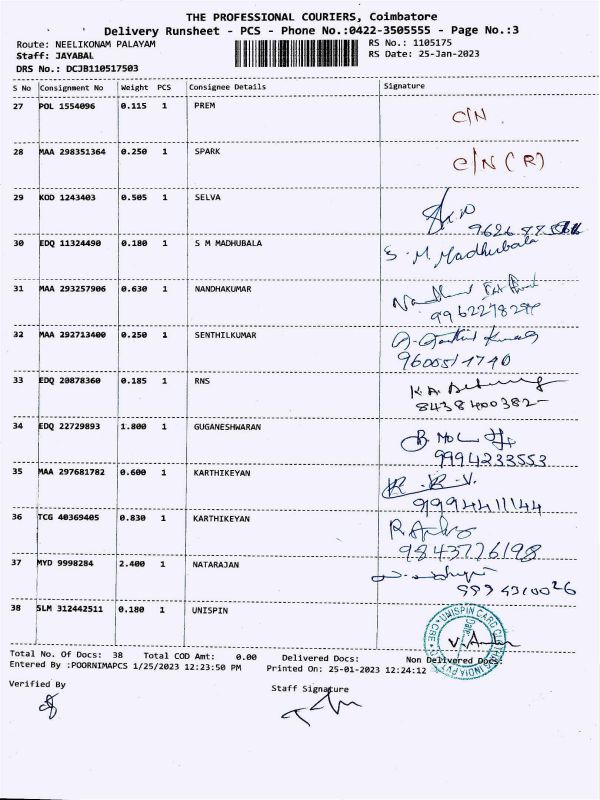 THE PROFESSIONAL COURIERS, Coimbatore
Delivery Runsheet - PCS - Phone No.:0422-3505555 - Page No.:3
Route: NEELIKONAM PALAYAM RS No.: 1105175
Staff: JAYABAL RS Date: 25-Jan-2023
DRS No.: DCJB110517503
S No Consignment No Weight PCS Consignee Details Signature
27 POL 1554096 0.115 1 PREM C/N
28 MAA 298351364 0.250 1 SPARK C/N (R)
29 KOD 1243403 0.505 1 SELVA
30 EDQ 11324490 0.180 1 S M MADHUBALA S. M. Madhubala
31 MAA 293257906 0.630 1 NANDHAKUMAR
32 MAA 292713400 0.250 1 SENTHILKUMAR
9600511740
33 EDQ 20878360 0.185 1 RNS
8438400382
34 EDQ 22729893 1.800 1 GUGANESHWARAN
9994233553
35 MAA 297681782 0.600 1 KARTHIKEYAN
9994411144
36 TCG 40369405 0.830 1 KARTHIKEYAN
9843776198
37 MYD 9998284 2.400 1 NATARAJAN
38 SLM 312442511 0.180 1 UNISPIN
UNISPIN CARD CLOTHING INDIA PVT
CBE
Date
Total No. Of Docs: 38 Total COD Amt: 0.00 Delivered Docs: Non Delivered Docs:
Entered By :POORNIMAPCS 1/25/2023 12:23:50 PM Printed On: 25-01-2023 12:24:12
Verified By Staff Signature